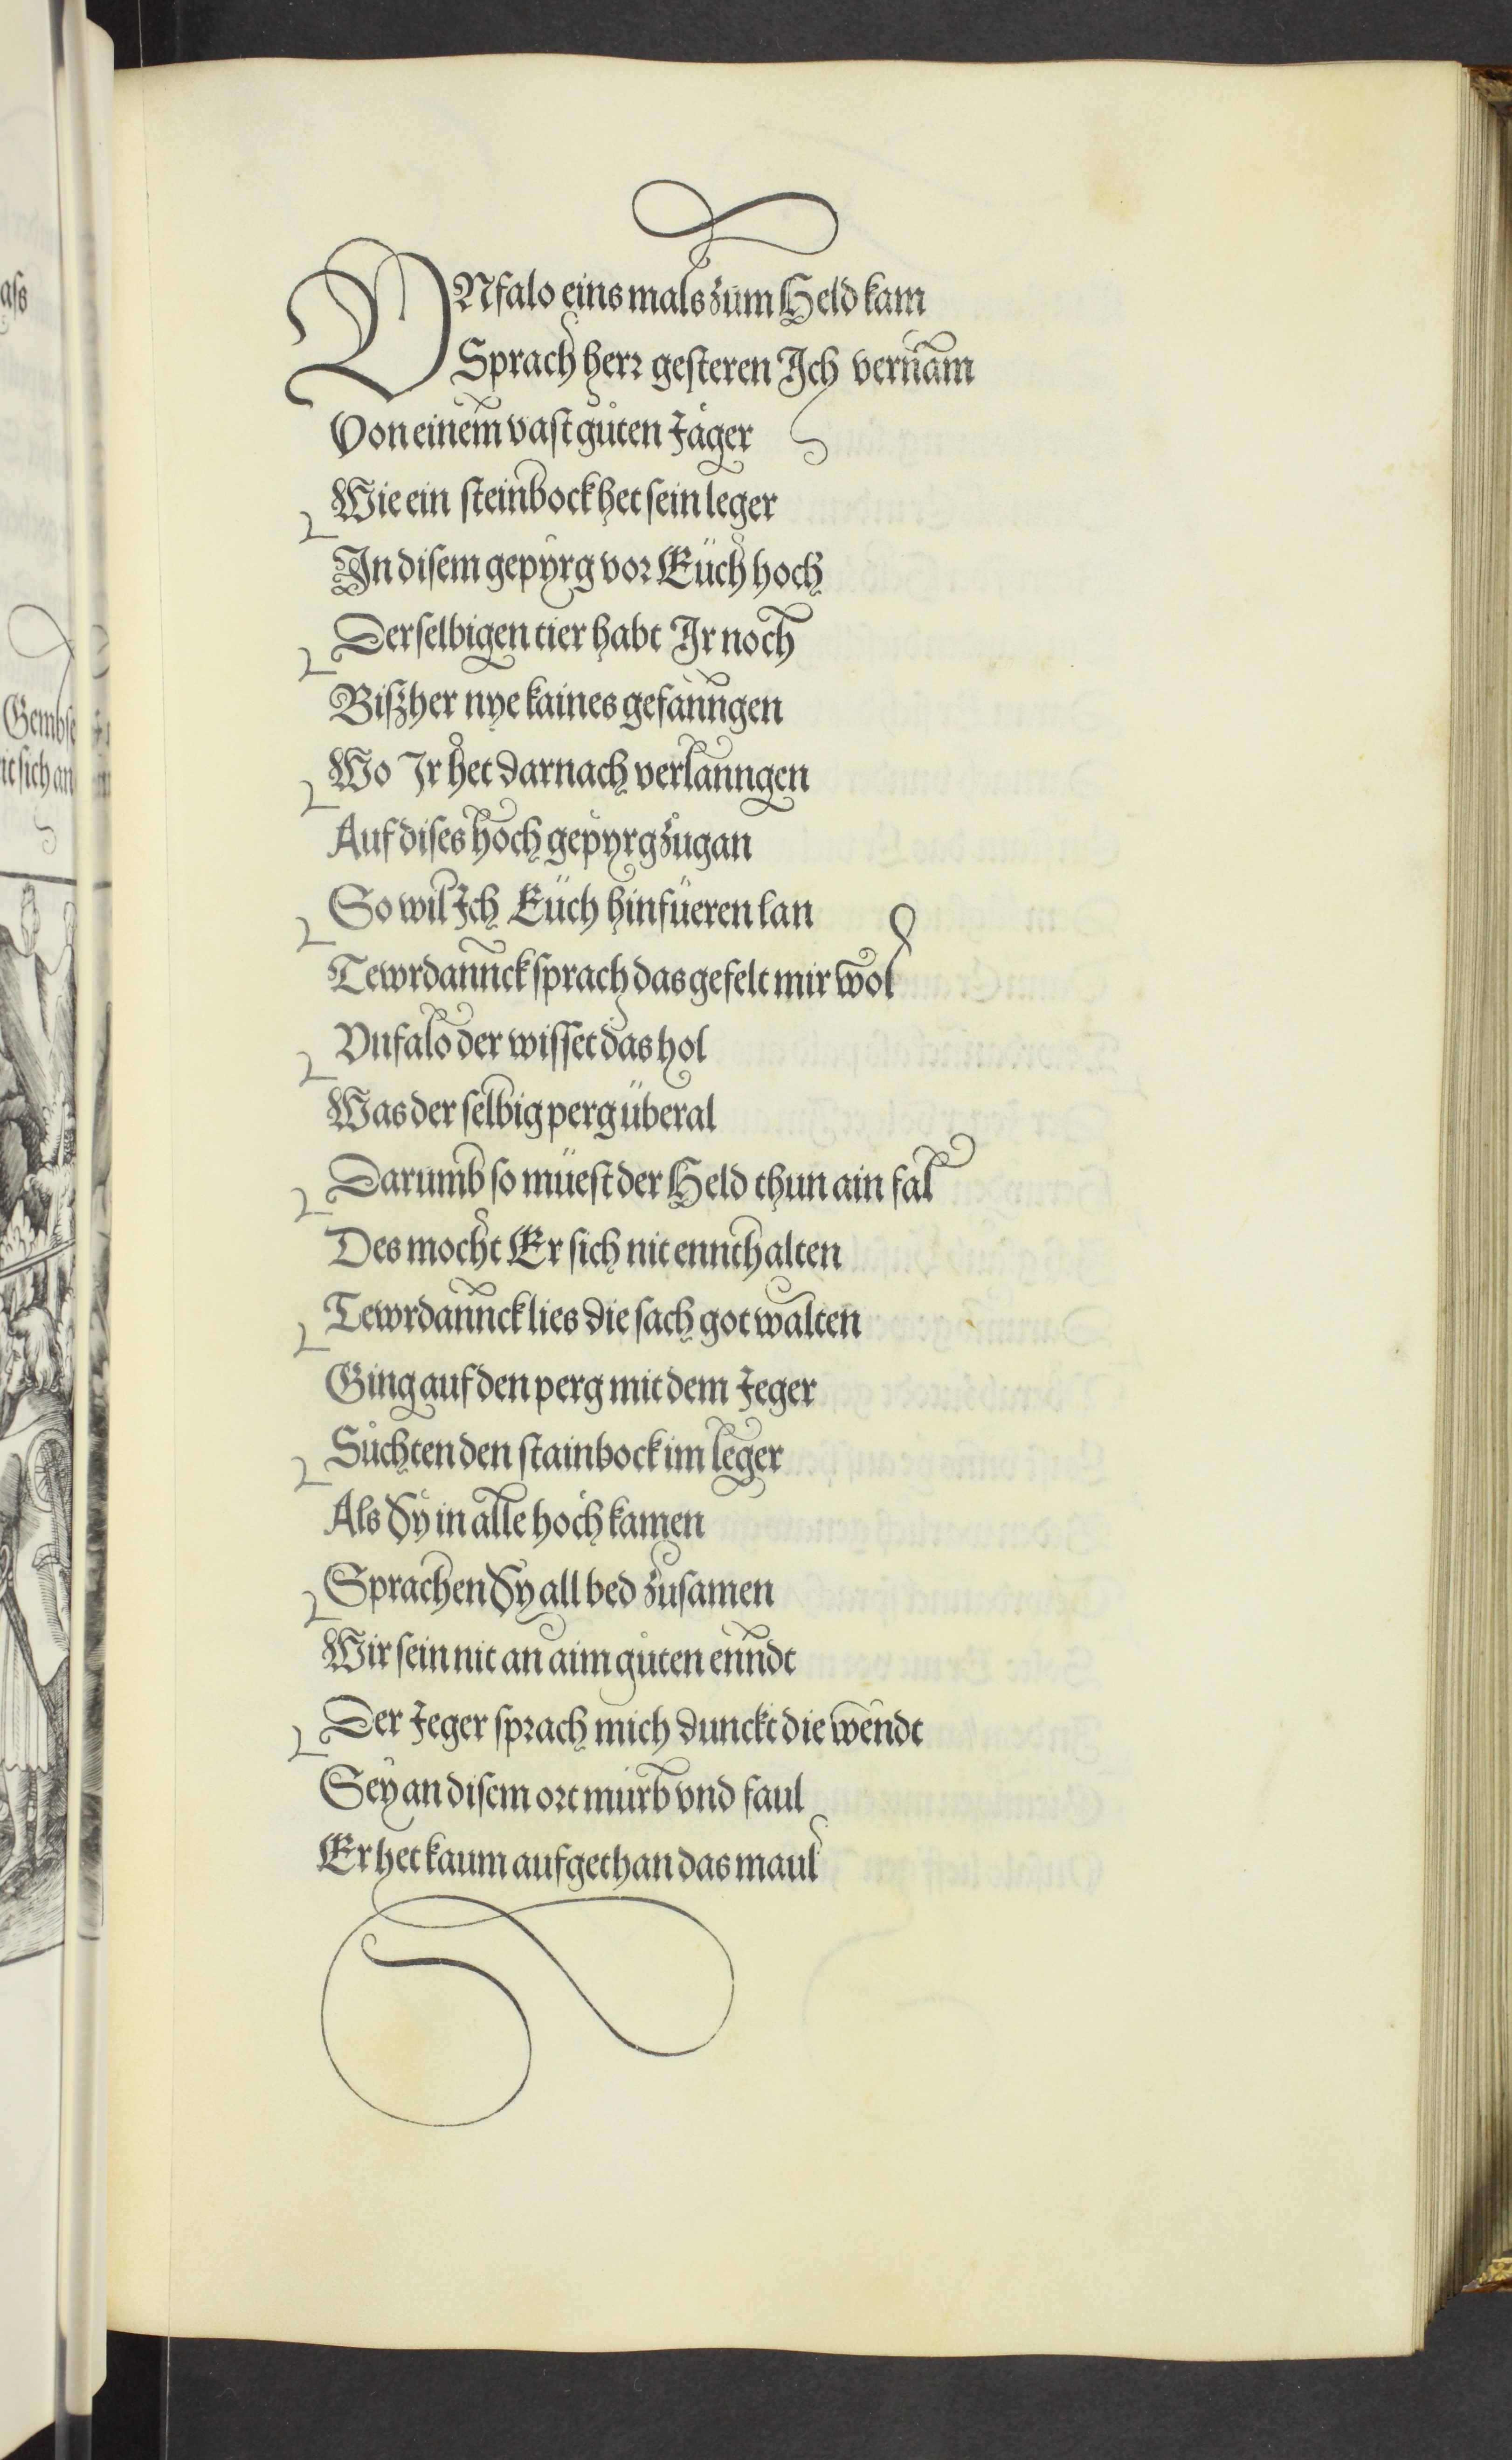 VNfalo eins mals zum Held kam
Sprach herr gesteren Ich vernam
Von einem vast gůten Jäger
Wie ein steinbock het sein leger
In disem gepyrg vor Eüch hoch
Derselbigen tier habt Ir noch
Biszher nye kaines gefanngen
Wo Ir het darnach verlanngen
Auf dises hoch gepyrg zůgan
So wil Ich Eüch hinfüeren lan
Tewrdannck sprach das gefelt mir wol
Vnfalo der wisset das hol
Was der selbig perg überal
Darumb so müest der Held thun ain fal
Des mocht Er sich nit ennthalten
Tewrdannck lies die sach got walten
Ging auf den perg mit dem Jeger
Sůchten den stainbock im leger
Als Sy in alle hoch kamen
Sprachen Sy all bed zusamen
Wir sein nit an aim gůten enndt
Der Jeger sprach mich dunckt die wendt
Sey an disem ort mürb vnd faul
Er het kaum aufgethan das maul
ass
Gembse
it sich an